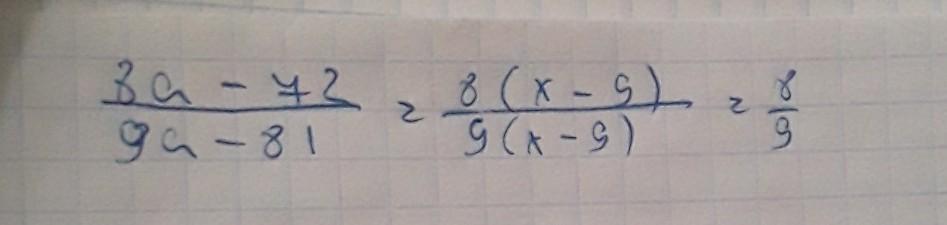 8a - 72 / 9a - 81 = 8(x - 9) / 9(x - 9) = 8 / 9